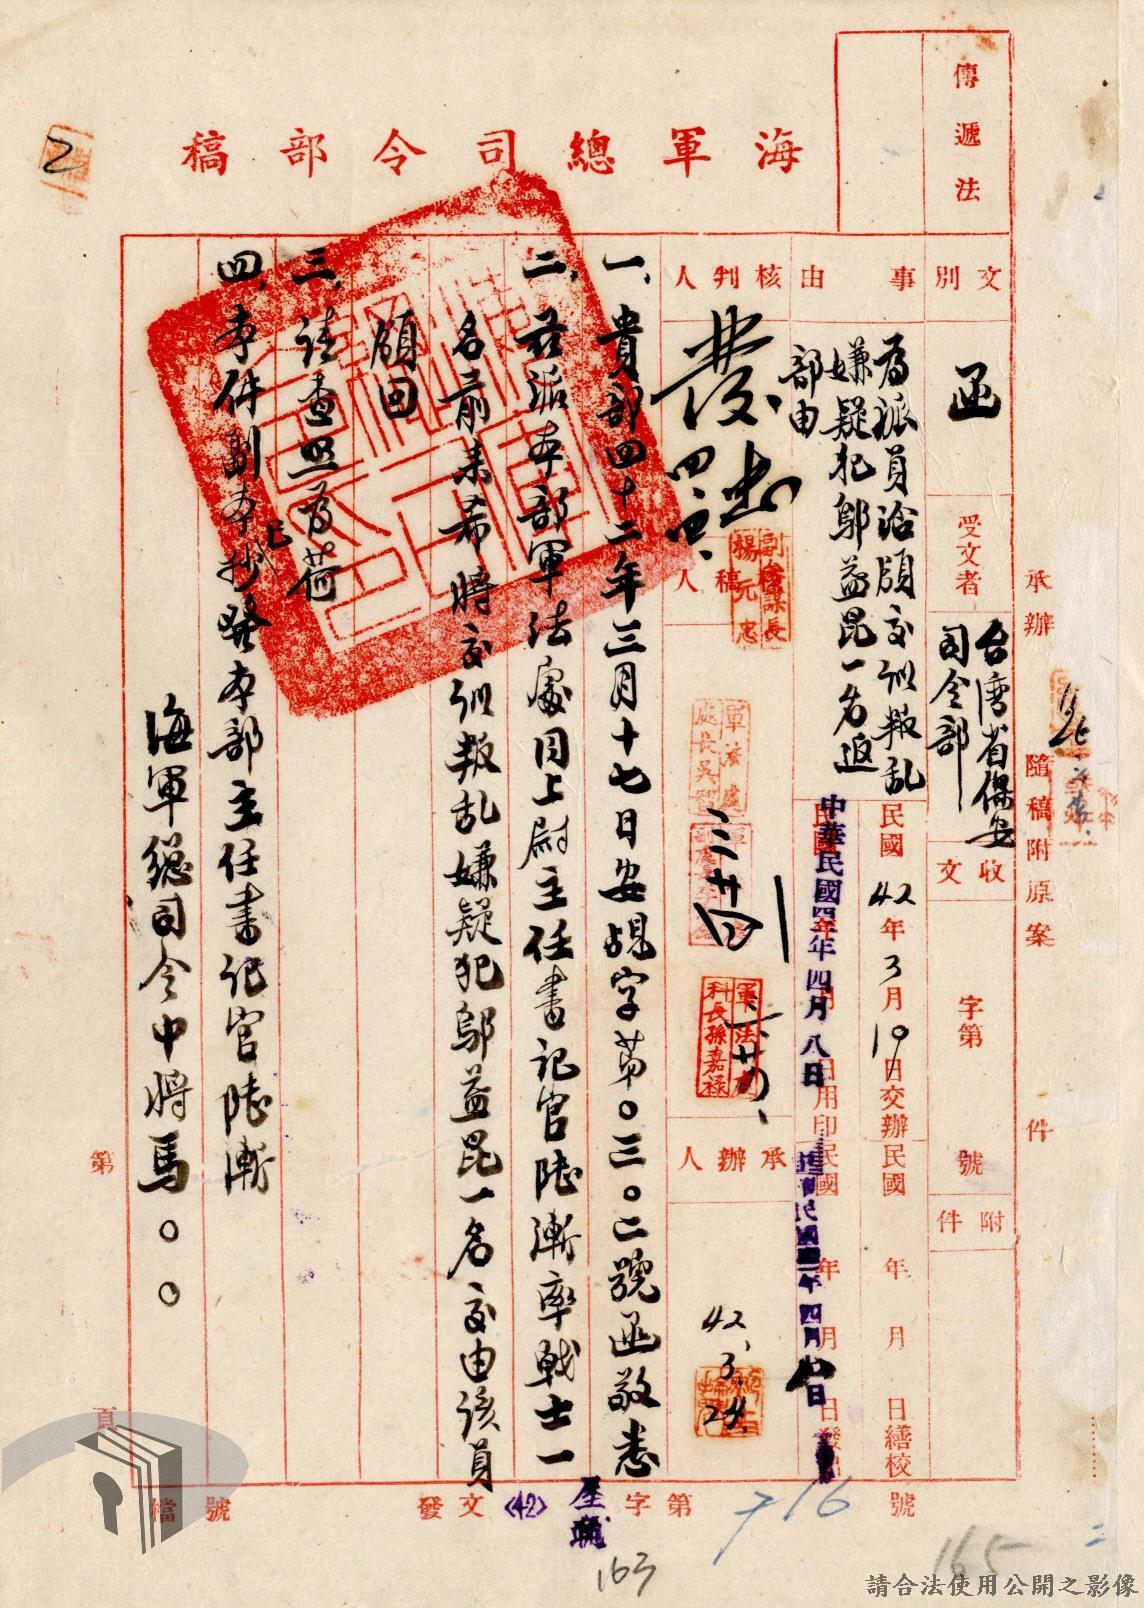 傳遞法
海軍總司令部稿
2
承辦
隨稿附原案
件
文別
函
受文者
台湾省保安
司令部
收文
字第
號
附件
事由
為派員洽領交训叛乱
嫌疑犯鄔益昆一名返
部由
民國42年3月19日交辦
民國 年 月 日繕校
中華民國四二年四月八日
日用印
核判人
發
四、四、
核稿人
副參謀長
楊元忠
軍法處
處長吳
三廿四
軍法處
科長孫嘉祿
承辦人
42.3.24.
一、貴部四十二年三月十七日安覌字第〇三〇二號函敬悉
二、茲派本部軍法處同上尉主任書记官陸漸率戰士一
名前来希將交训叛乱嫌疑犯鄔益昆一名交由该員
領回
三、请查照為荷
四、本件副本抄發本部主任書记官陸漸
海軍總司令中將馬〇〇
第
頁
檔號
發文
(42)
字第
716
號
163
165
請合法使用公開之影像